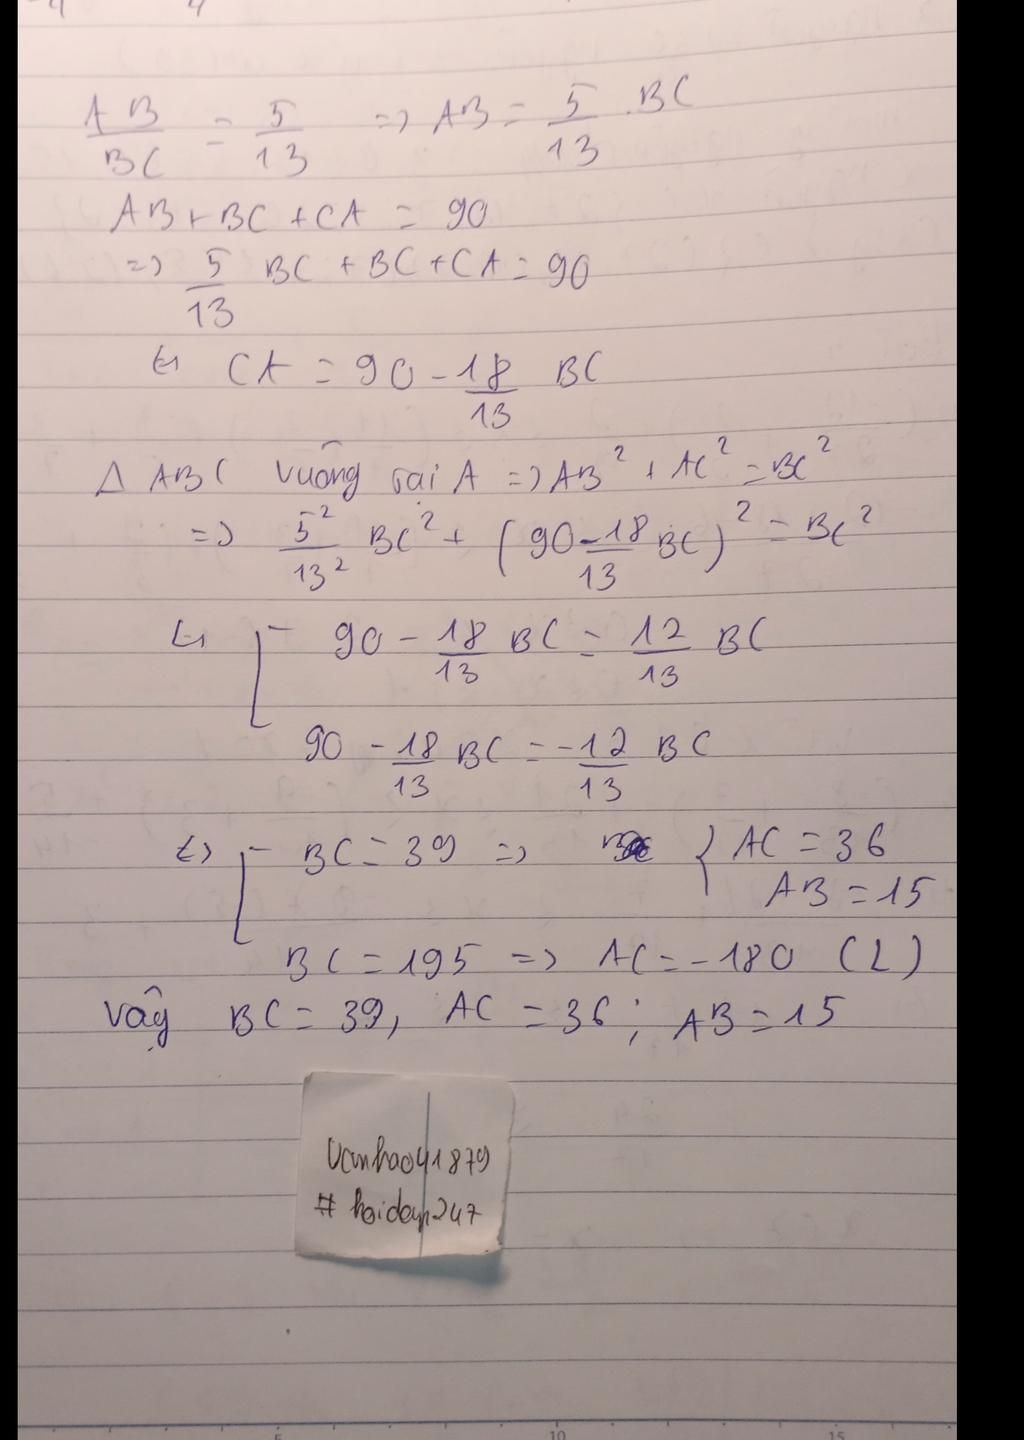 AB/BC = 5/13 => AB = 5/13 . BC
AB + BC + CA = 90
=> 5/13 BC + BC + CA = 90
<=> CA = 90 - 18/13 BC
Δ ABC vuông tại A => AB² + AC² = BC²
=> 5²/13² BC² + (90 - 18/13 BC)² = BC²
<=> [ 90 - 18/13 BC = 12/13 BC
90 - 18/13 BC = -12/13 BC
<=> [ BC = 39 => { AC = 36
AB = 15
BC = 195 => AC = -180 (L)
Vậy BC = 39, AC = 36 ; AB = 15
Vanhao41879
# hoidap247
5 10 15